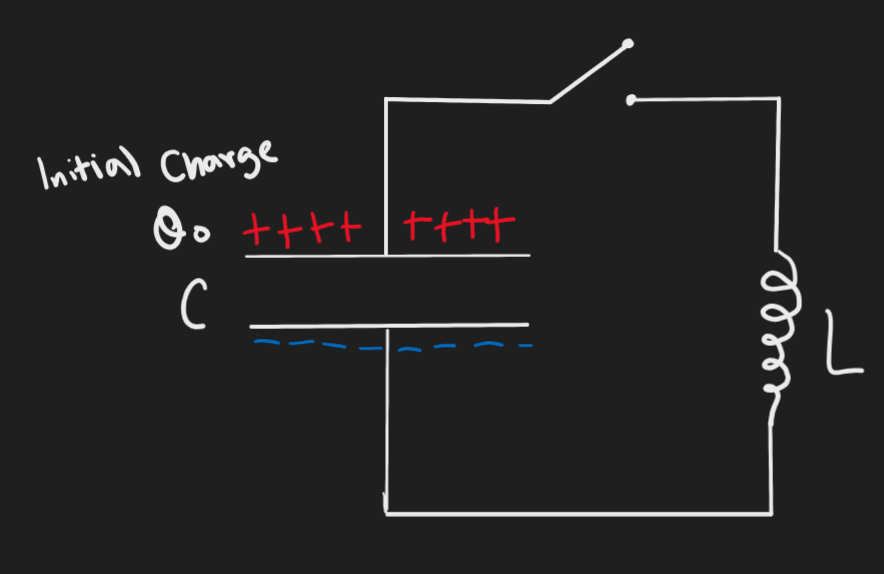 Initial Charge
Q₀ ++++ ++++
C
- - - - - - - -
L